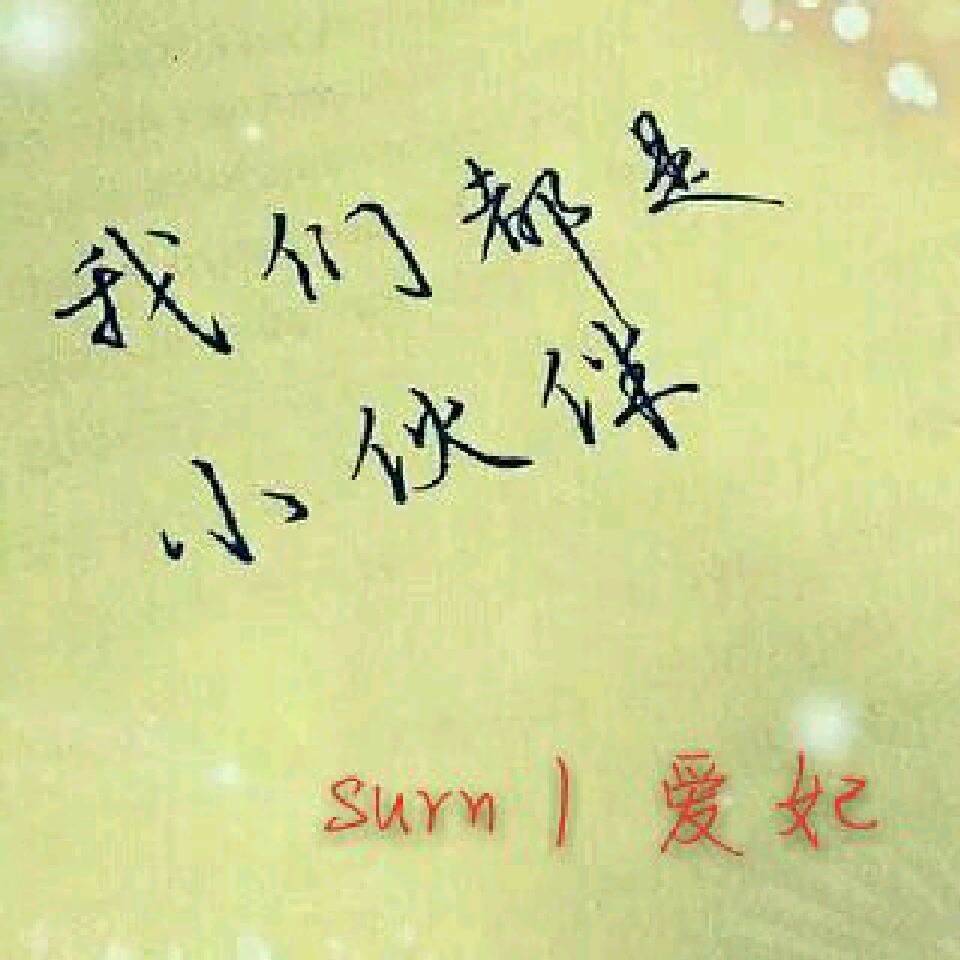 我们都是
小伙伴
surn | 爱妃